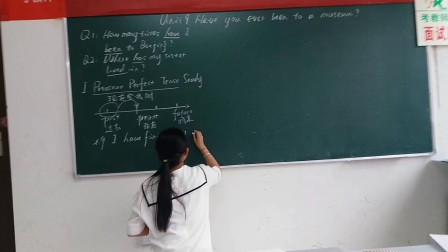 Unit 9 Have you ever been to a museum?
Q1: How many times have I
been to Beijing?
Q2: Where has my sister
lived in?
I Present Perfect Tense Study
现在完成时
past present future
过去 现在 将来
eg I have fin
考教师
面试